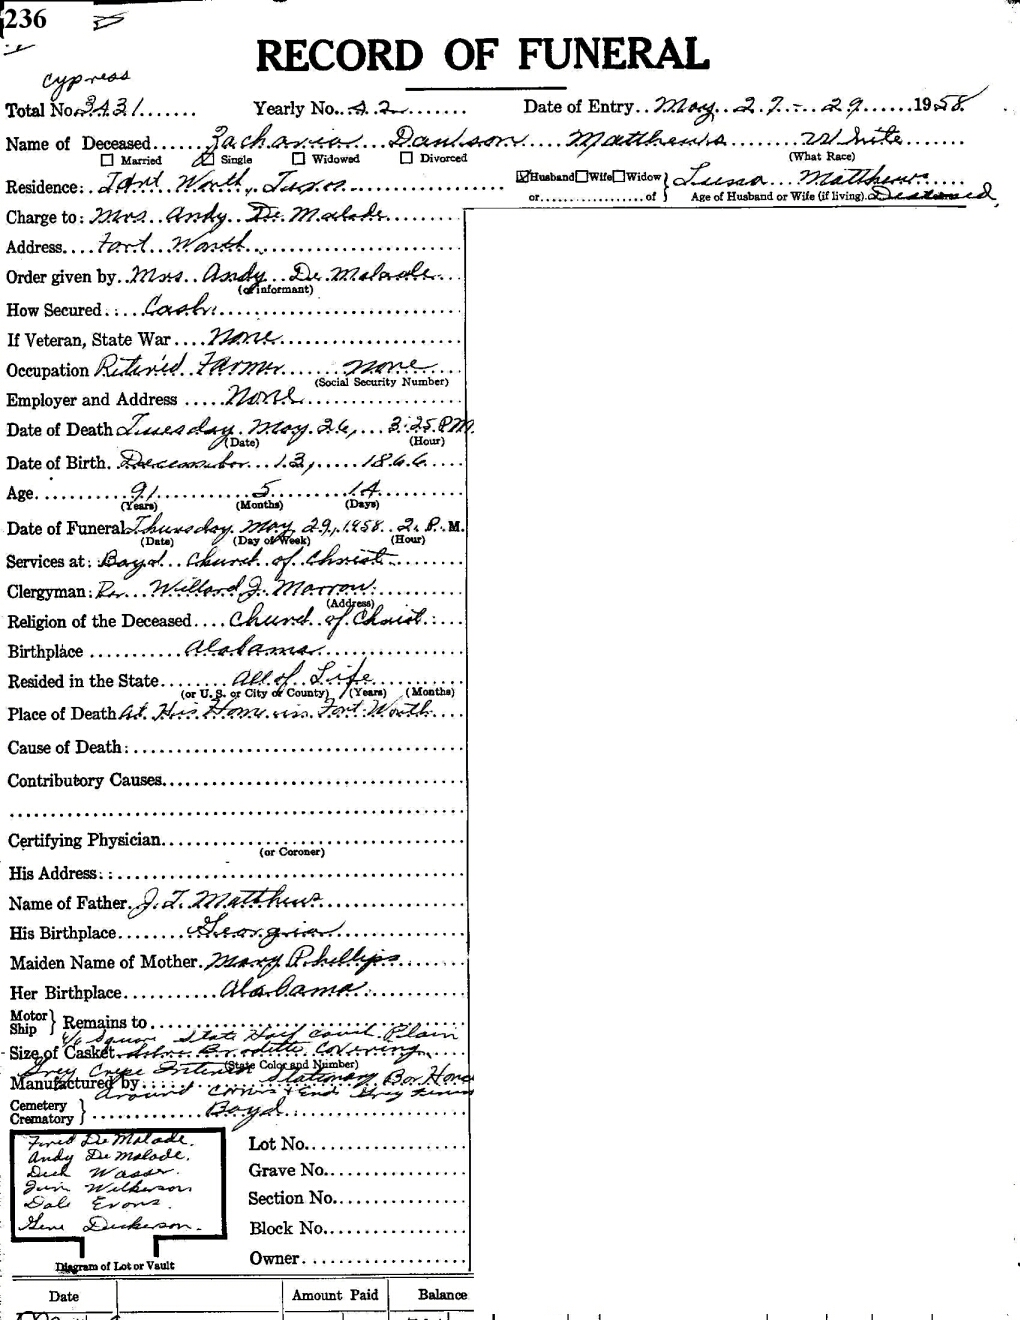 236
RECORD OF FUNERAL
Cypress
Total No. 3431 Yearly No. 42 Date of Entry May 27 - 29 1958
Name of Deceased Zacharia Davidson Matthews White
☐ Married ☑ Single ☐ Widowed ☐ Divorced (What Race)
Residence: Fort Worth, Texas ☑Husband☐Wife☐Widow} Luna Matthews
or of } Age of Husband or Wife (if living) Deceased
Charge to: Mrs Andy De Malade
Address Fort Worth
Order given by Mrs Andy De Malade
(of informant)
How Secured Cash
If Veteran, State War None
Occupation Retired Farmer none
(Social Security Number)
Employer and Address None
Date of Death Tuesday May 26, 3:25 P.M.
(Date) (Hour)
Date of Birth December 13, 1866
Age 91 5 14
(Years) (Months) (Days)
Date of Funeral Thursday May 29, 1958 2 P. M.
(Date) (Day of Week) (Hour)
Services at: Boyd Church of Christ
Clergyman: Willard J. Morrow
(Address)
Religion of the Deceased Church of Christ
Birthplace Alabama
Resided in the State All of Life
(or U. S. or City or County) (Years) (Months)
Place of Death At His Home in Fort Worth
Cause of Death:
Contributory Causes
Certifying Physician
(or Coroner)
His Address:
Name of Father J. T. Matthews
His Birthplace Georgia
Maiden Name of Mother Mary Phillips
Her Birthplace Alabama
Motor Ship } Remains to
6/6 Square State Half Couch Plain
Size of Casket Silver Covering
(State Color and Number)
Grey Crepe Interior Stationary Bar Handle
Manufactured by
Around Corners & End Grey
Cemetery Crematory } Boyd
Fred De Malade.
Andy De Malade.
Dick
Jim Wilkerson
Dale Evans.
Gene Dickerson.
Diagram of Lot or Vault
Lot No.
Grave No.
Section No.
Block No.
Owner
Date Amount Paid Balance